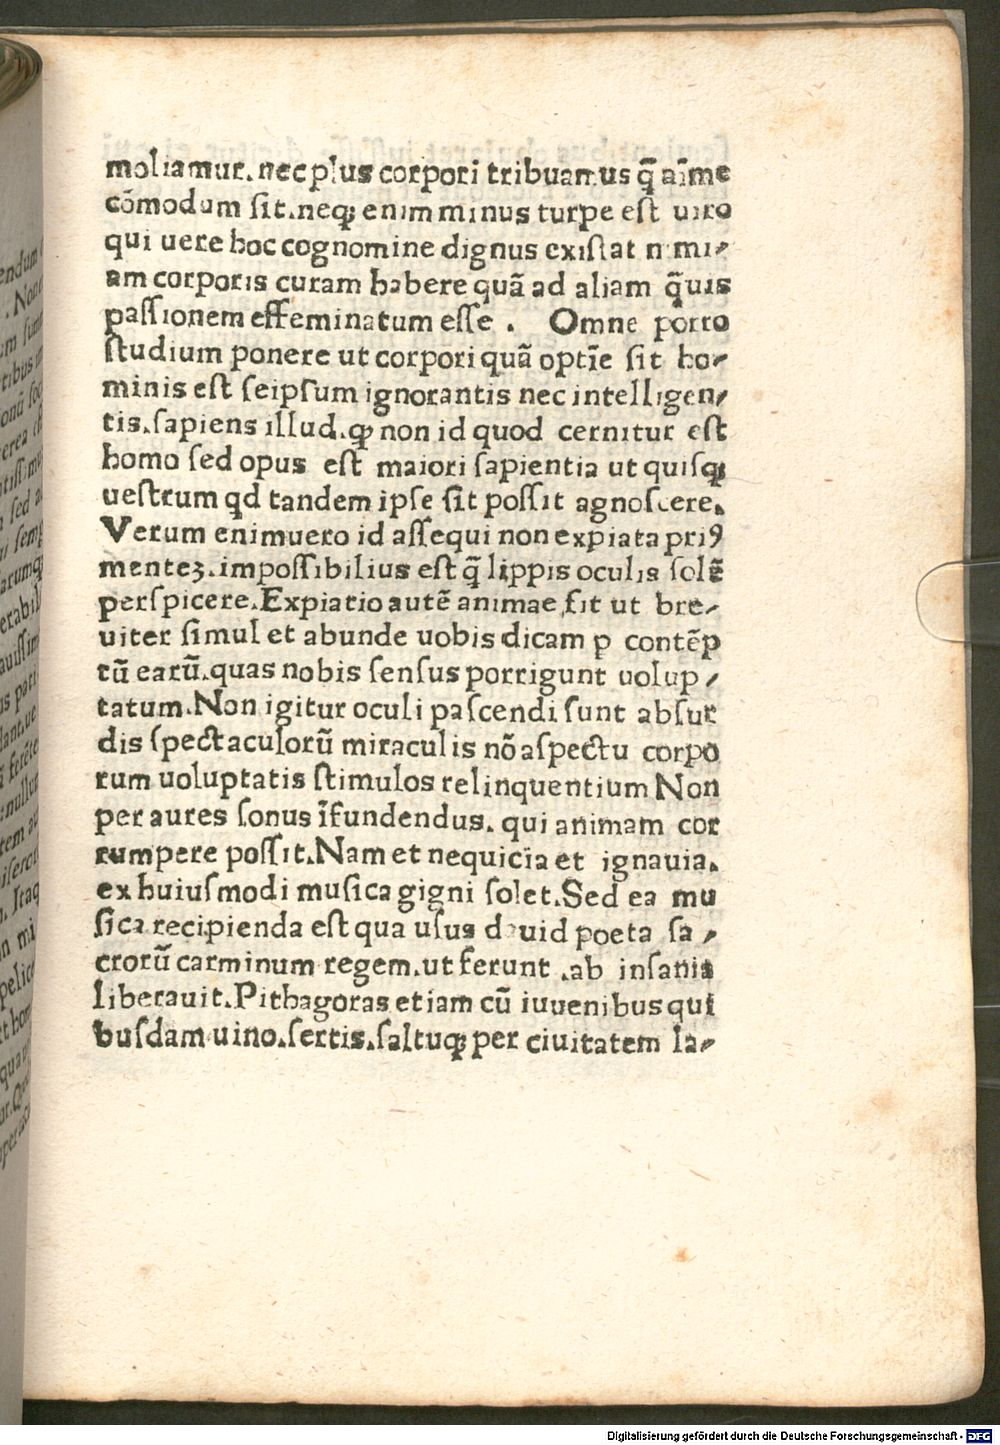 moliamur. nec plus corpori tribuamus q̄ aīme
cōmodum sit. neqꝫ enim minus turpe est uiro
qui uere hoc cognomine dignus existat nimi⸗
am corporis curam habere quā ad aliam q̄uis
passionem effeminatum esse . Omne porro
studium ponere ut corpori quā optīe sit ho⸗
minis est seipsum ignorantis nec intelligen⸗
tis. sapiens illud. ꝙ non id quod cernitur est
homo sed opus est maiori sapientia ut quisqꝫ
uestrum qd tandem ipse sit possit agnoscere.
Verum enimuero id assequi non expiata priꝯ
menteꝫ. impossibilius est q̄ lippis oculis solē
perspicere. Expiatio autē animae sit ut bre⸗
uiter simul et abunde uobis dicam p contēp
tū earū. quas nobis sensus porrigunt uolup⸗
tatum. Non igitur oculi pascendi sunt absur
dis spectaculorū miraculis nō aspectu corpo
rum uoluptatis stimulos relinquentium Non
per aures sonus īfundendus. qui animam cor
rumpere possit. Nam et nequicia et ignauia.
ex huiusmodi musica gigni solet. Sed ea mu
sica recipienda est qua usus dauid poeta sa⸗
crorū carminum regem. ut ferunt .ab insania
liberauit. Pithagoras etiam cū iuuenibus qui
busdam uino. sertis. saltuqꝫ per ciuitatem la⸗
Digitalisierung gefördert durch die Deutsche Forschungsgemeinschaft - DFG